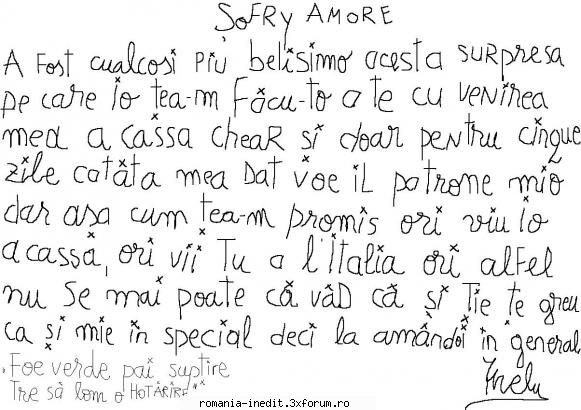 SOFRY AMORE
A FOST cualcosi piu belisimo acesta SURPRESA
pe care io tea-m Făcu-to a te cu VENIREA
mea a cassa cheaR si doar pentru cinque
zile catâta mea Dat voe iL patrone mio
dar asa cum tea-m promis ori viu io
acassa, ori vii Tu a l'Italia ori alFel
nu Se mai poate că văD că si Tie te greu
ca si mie în special deci la amândoi în general
Foe verde pai suptire
Tre să lom o HOTĂRÎRE
Jnelu
romania-inedit.3xforum.ro